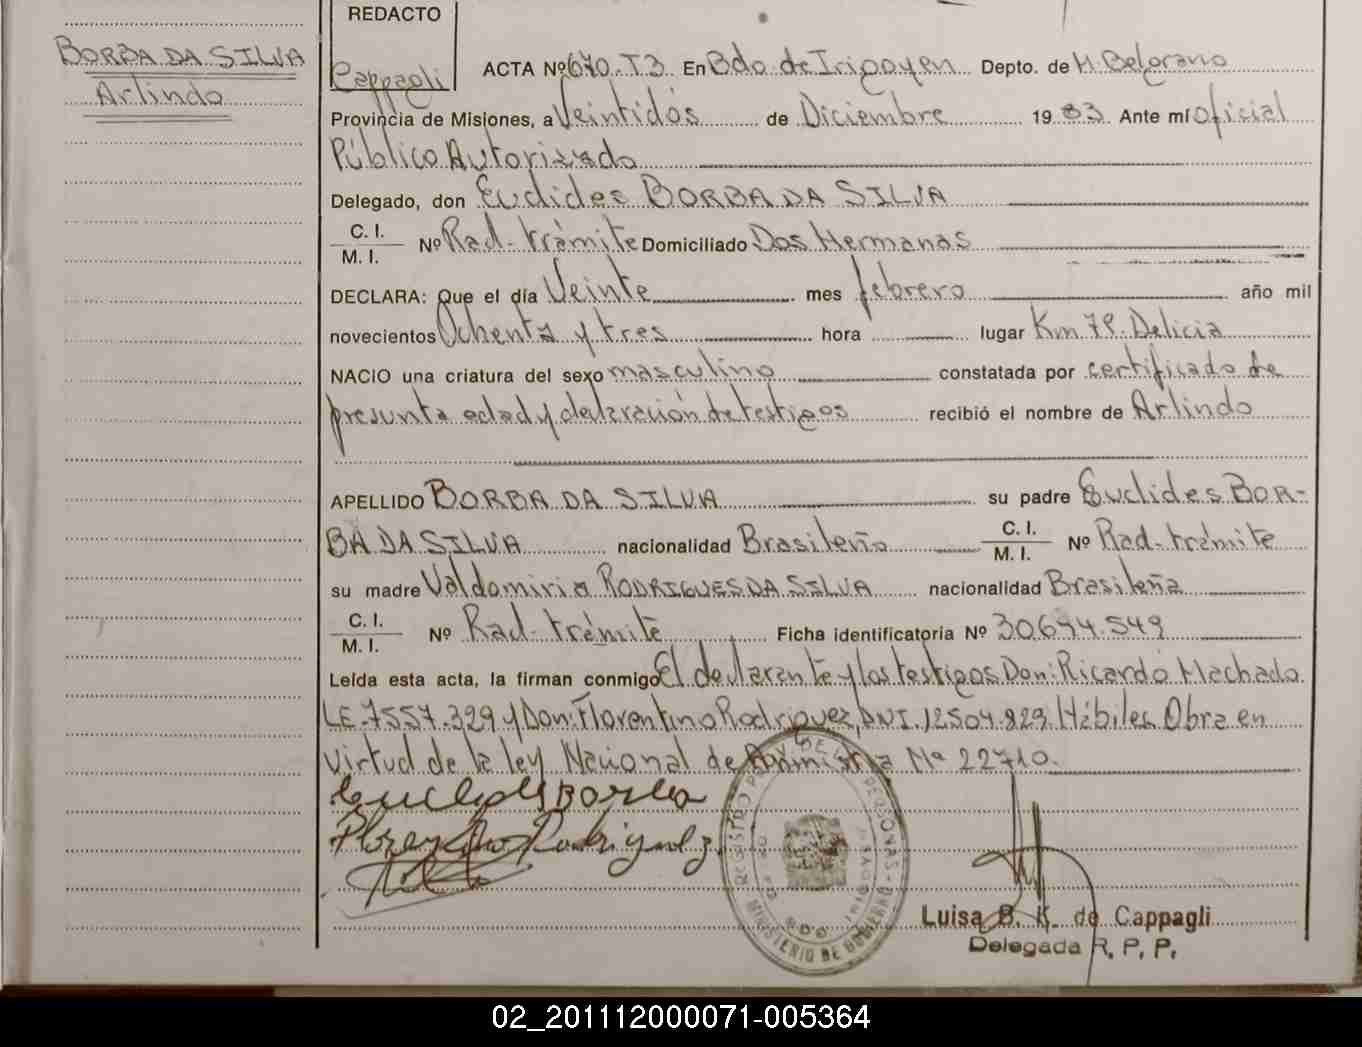 BORBA DA SILVA
Arlindo
REDACTO
Cappagli
ACTA Nº 670-T3 En Bdo de Irigoyen Depto. de M. Belgrano
Provincia de Misiones, a Veintidós de Diciembre 19 83 Ante mí Oficial
Público Autorizado
Delegado, don Euclides BORBA DA SILVA
C. I.
M. I. Nº Rad-trámite Domiciliado Dos Hermanas
DECLARA: Que el día Veinte mes febrero año mil
novecientos Ochenta y tres hora lugar Km 78-Delicia
NACIO una criatura del sexo masculino constatada por certificado de
presunta edad y declaración de testigos recibió el nombre de Arlindo
APELLIDO BORBA DA SILVA su padre Euclides BOR-
BA DA SILVA nacionalidad Brasileño C. I. M. I. Nº Rad-trámite
su madre Valdomiria RODRIGUES DA SILVA nacionalidad Brasileña
C. I.
M. I. Nº Rad-trámite Ficha identificatoria Nº 30.694.549
Leída esta acta, la firman conmigo El declarante y los testigos Don: Ricardo Machado
L.E. 7557.329 y Don: Florentino Rodriguez, DNI. 12504.829. Hábiles. Obra en
Virtud de la ley Nacional de Amnistía Nº 22710.
Euclides Borba
Rodriguez
REGISTRO PROV. DE LAS PERSONAS
MINISTERIO DE GOBIERNO
Luisa B. K. de Cappagli
Delegada R. P. P.
02_201112000071-005364